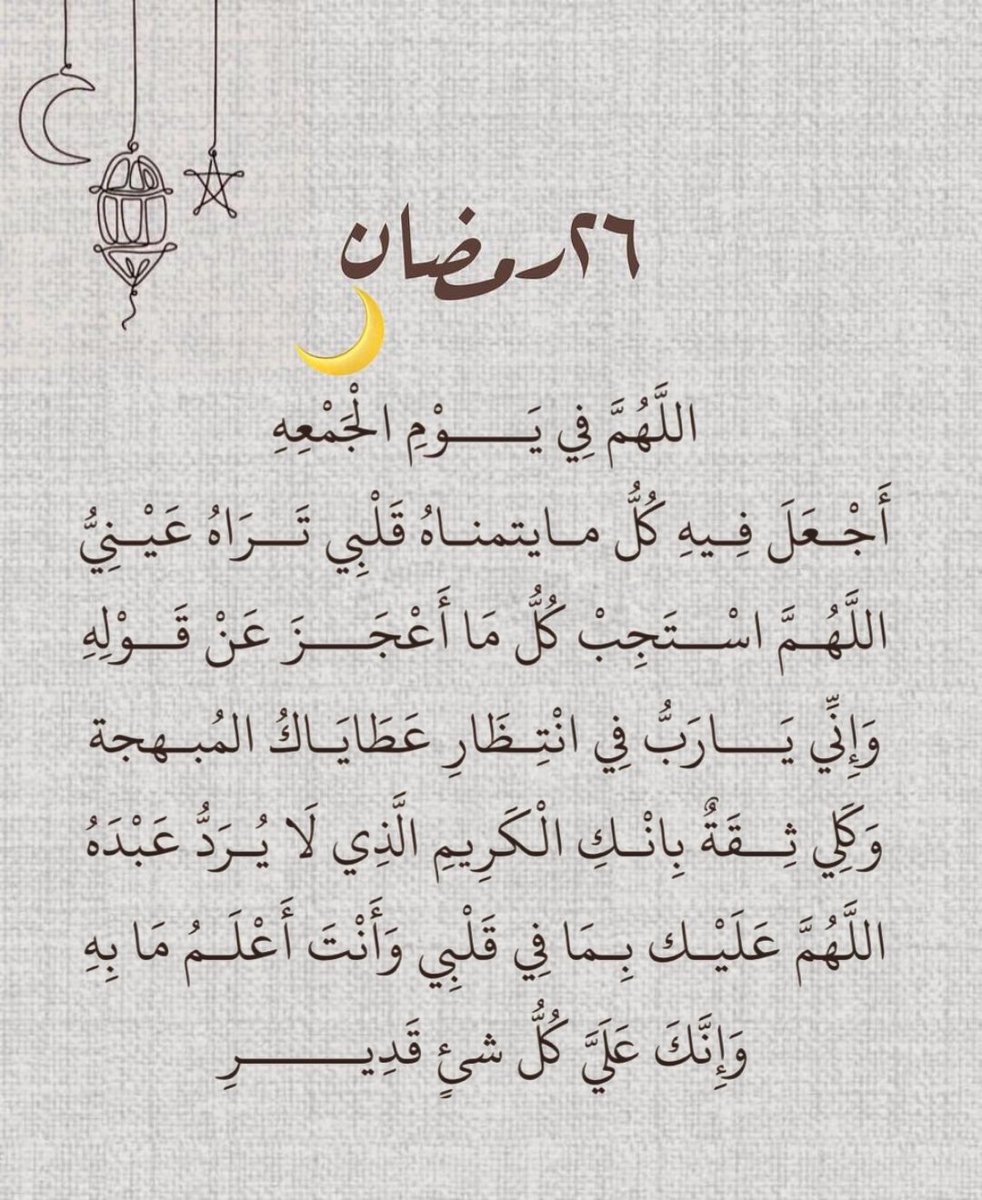 ٢٦رمضان
اللَّهُمَّ فِي يَـــوْمِ الْجَمْعِهِ
أَجْـعَلَ فِـيهِ كُلُّ مـايتمنـاهُ قَلْبِي تَـــرَاهُ عَيْـنِيُّ
اللَّهُـمَّ اسْـــتَجِبْ كُلُّ مَا أَعْجَـــزَ عَنْ قَـــوْلِهِ
وَإِنِّي يَـــارَبُّ فِي انْتِـظَارِ عَطَايَـاكُ المُبـهجة
وَكَلِي ثِـــقَةٌ بِانْـكِ الْكَرِيمِ الَّذِي لَا يُـرَدُّ عَبْدَهُ
اللَّهُمَّ عَلَيْـك بِـمَا فِي قَلْبِي وَأَنْتَ أَعْلَـمُ مَا بِهِ
وَإِنَّكَ عَلَيَّ كُلُّ شئٍ قَدِيـــــرِ